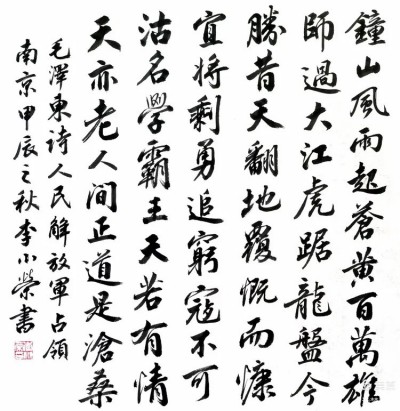 鐘山風雨起蒼黃百萬雄
師過大江虎踞龍盤今
勝昔天翻地覆慨而慷
宜將剩勇追窮寇不可
沽名學霸王天若有情
天亦老人間正道是滄桑
毛澤東詩人民解放軍占領
南京甲辰之秋李小榮書